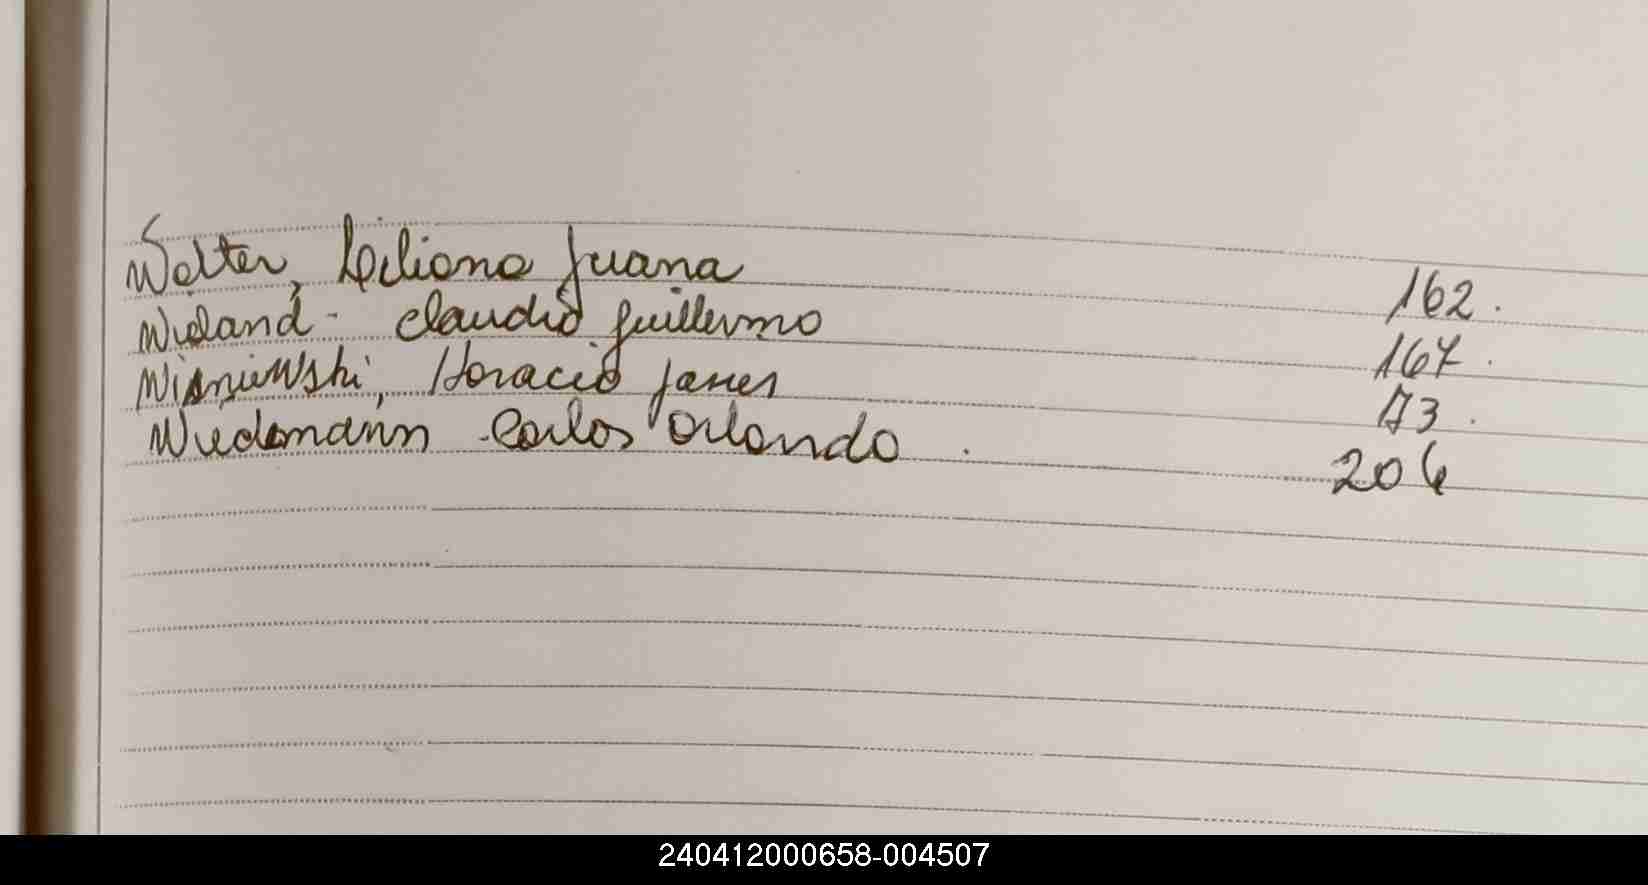 Walter, Liliana Juana 162.
Wieland - Claudio Guillermo 167.
Wisniewski, Horacio James 73.
Wiedemann Carlos Orlando . 204
240412000658-004507